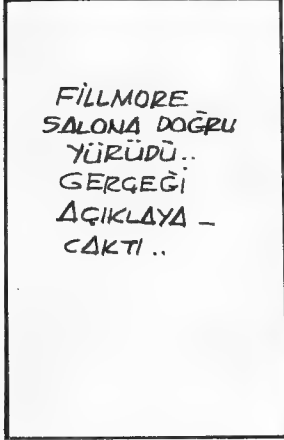 FİLLMORE
SALONA DOĞRU
YÜRÜDÜ..
GERÇEĞİ
AÇIKLAYA_
CAKTI..